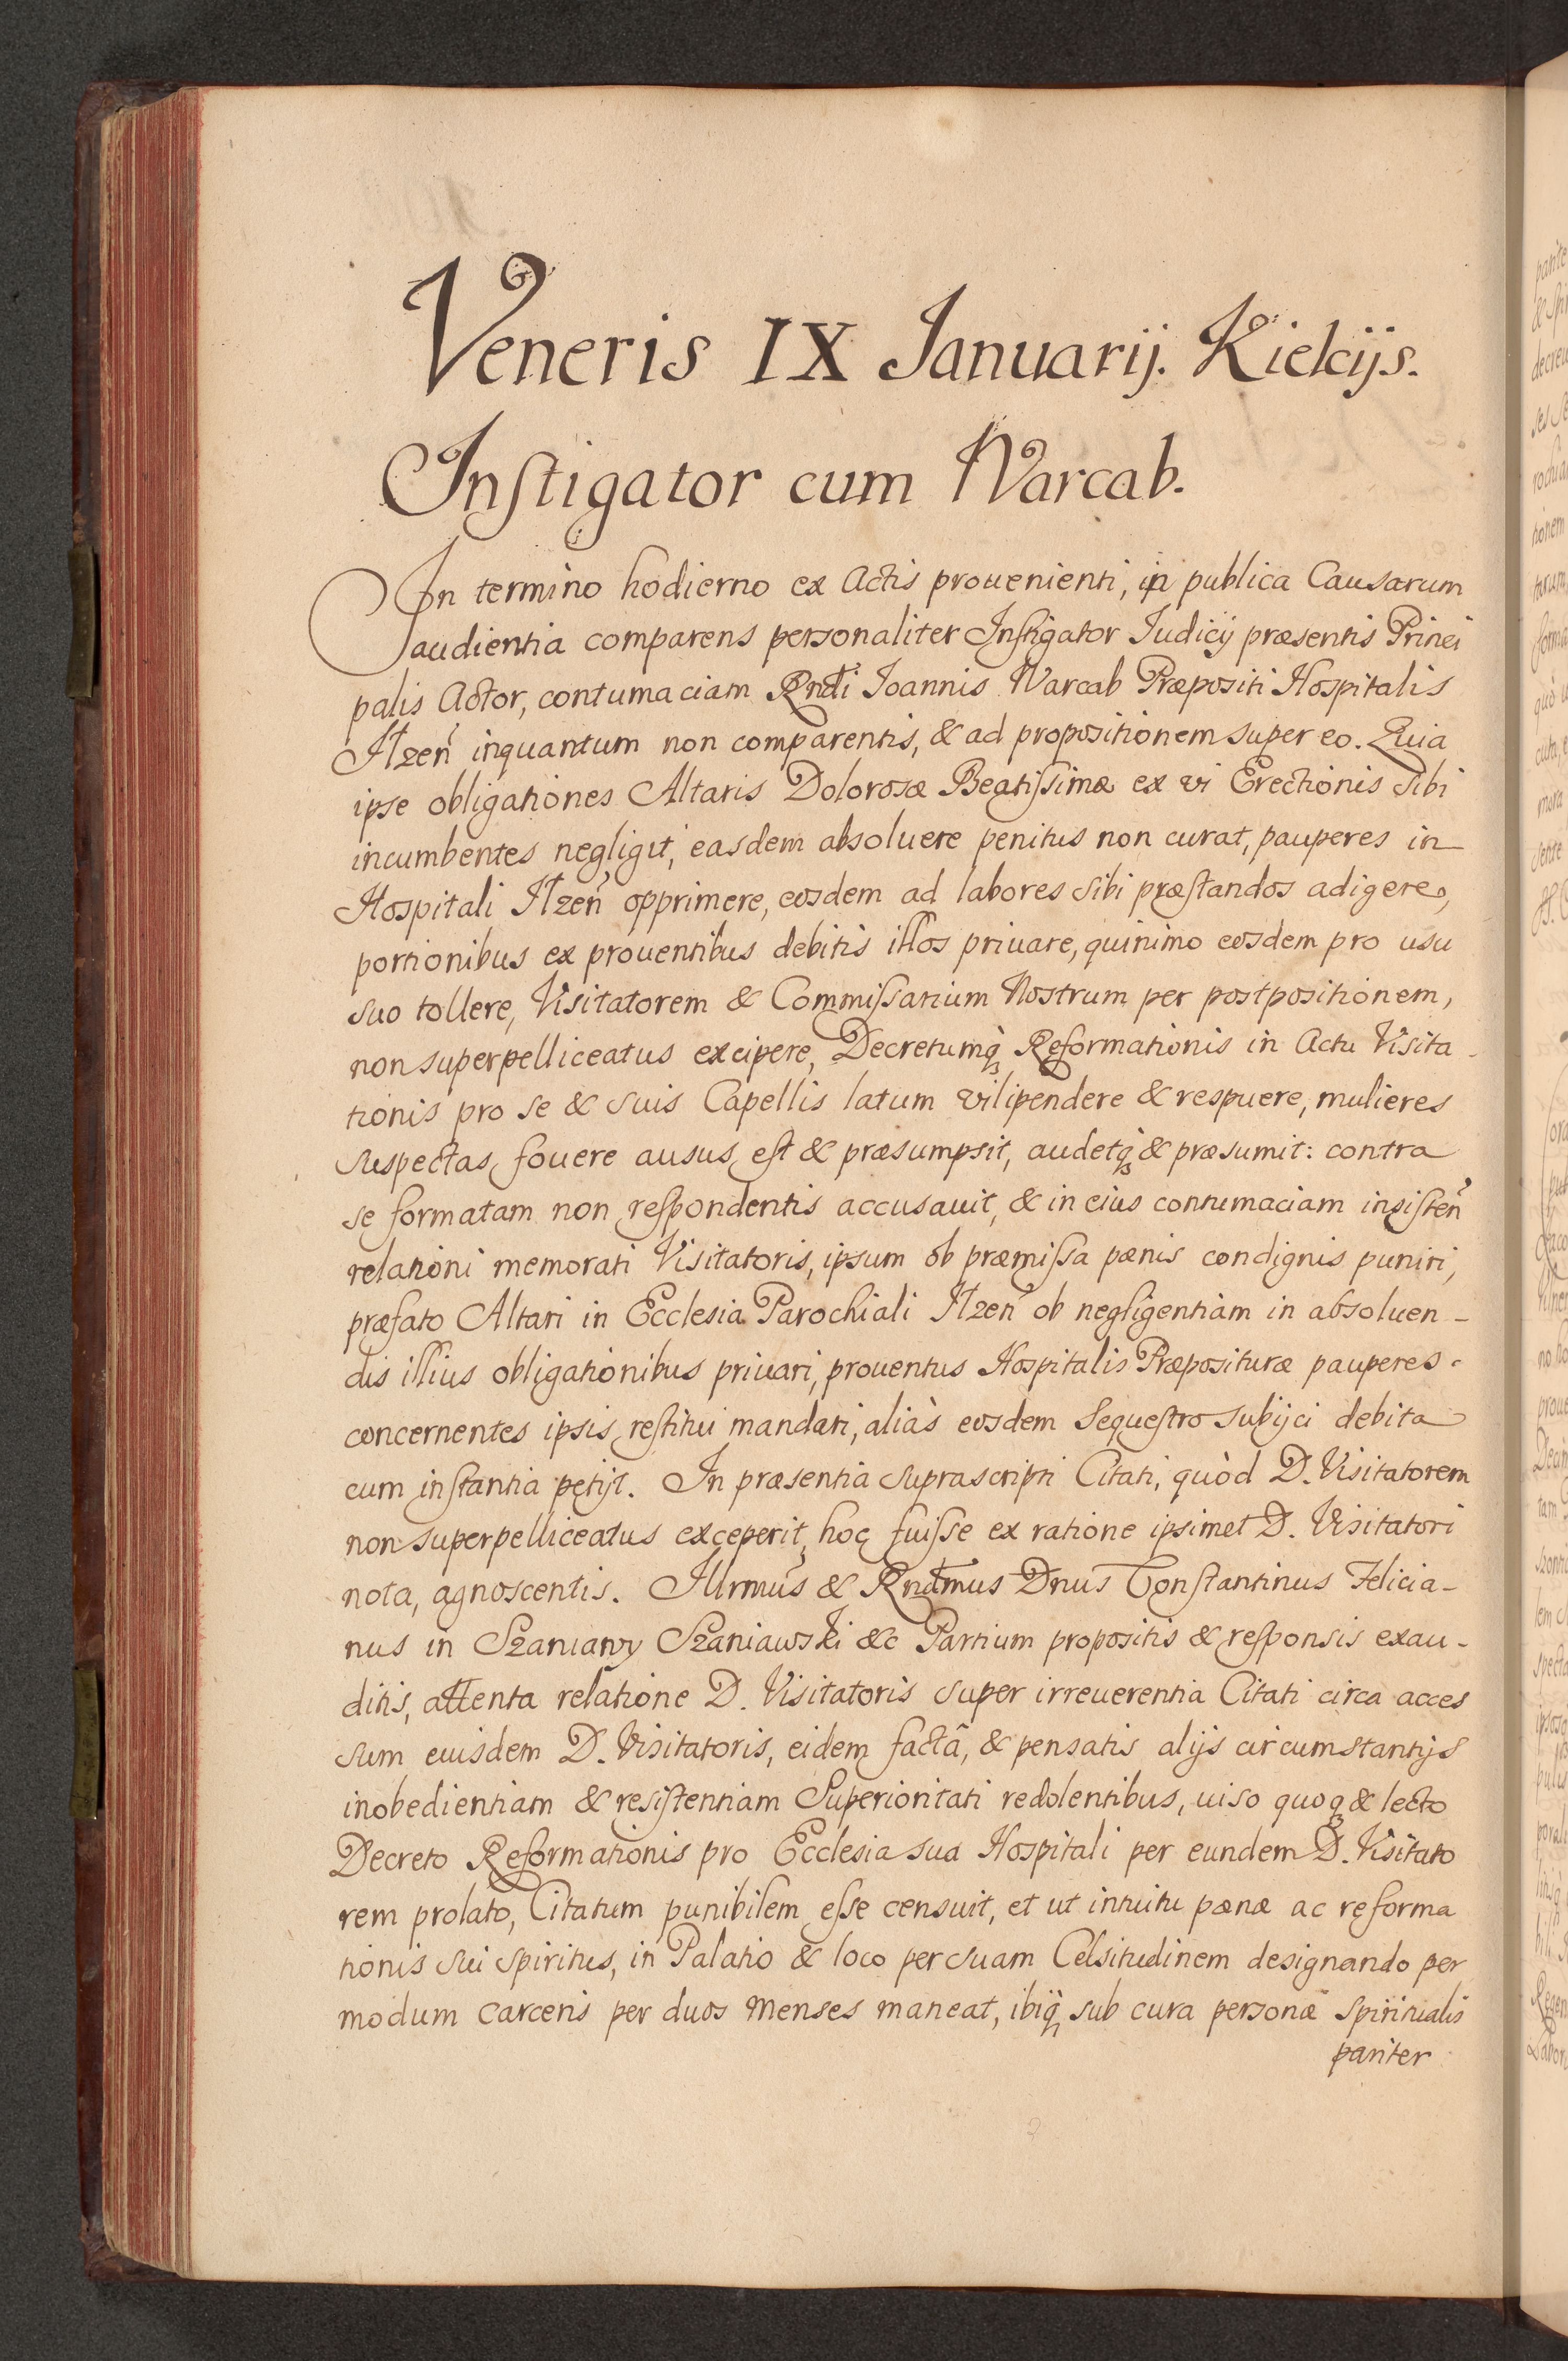 Veneris IX Januarij. Kielcijs.
Inſtigator cum Warcab.
In termino hodierno ex Actis prouenienti, in publica Causarum
audientia comparens personaliter Inſtigator Iudicij præsentis Princi
palis Actor, contumaciam Rndi Ioannis Warcab Præpositi Hospitalis
Ilzen̄ inquantum non comparentis, & ad propositionem super eo. Quia
ipse obligationes Altaris Dolorosæ Beatiſsimæ ex vi Erectionis sibi
incumbentes negligit, easdem absoluere penitus non curat, pauperes in
Hospitali Ilzen̄ opprimere, eosdem ad labores sibi præſtandos adigere,
portionibus ex prouentibus debitis illos priuare, quinimo eosdem pro usu
suo tollere, Visitatorem & Commiſsarium Nostrum per postpositionem,
non superpelliceatus excipere, Decretumq̀ Reformationis in Actu Visita-
tionis pro se & suis Capellis latum vilipendere & respuere, mulieres
suspectas fouere ausus eſt & præsumpsit, audetq̀ & præsumit: contra
se formatam non reſpondentis accusauit, & in eius contumaciam insiſten̄
relationi memorati Visitatoris, ipsum ob præmiſsa pænis condignis puniri,
præfato Altari in Ecclesia Parochiali Ilzen̄ ob negligentiam in absoluen-
dis illius obligationibus priuari, prouentus Hospitalis Præposituræ pauperes
concernentes ipsis reſtitui mandari, aliàs eosdem Sequeſtro subijci debita
cum inſtantia petijt. In præsentia suprascripti Citati, quòd D. Visitatorem
non superpelliceatus exceperit, hoc fuiſse ex ratione ipsimet D. Visitatori
nota, agnoscentis. Illrmus & Rndmus Dnus Conſtantinus Felicia-
nus in Szaniawy Szaniawski &c Partium propositis & reſponsis exau-
ditis, attenta relatione D. Visitatoris super irreuerentia Citati circa acces
sum euisdem D. Visitatoris, eidem factâ, & pensatis alijs circumstantijs
inobedientiam & resiſtentiam Superioritati redolentibus, uiso quoq & lecto
Decreto Reformationis pro Ecclesia sua Hospitali per eundem D. Visitato
rem prolato, Citatum punibilem eſse censuit, et ut intuitu pænæ ac reforma
tionis sui spiritus, in Palatio & loco per suam Celsitudinem designando per
modum carceris per duos menses maneat, ibiq̀ sub cura personæ spiritualis
pariter